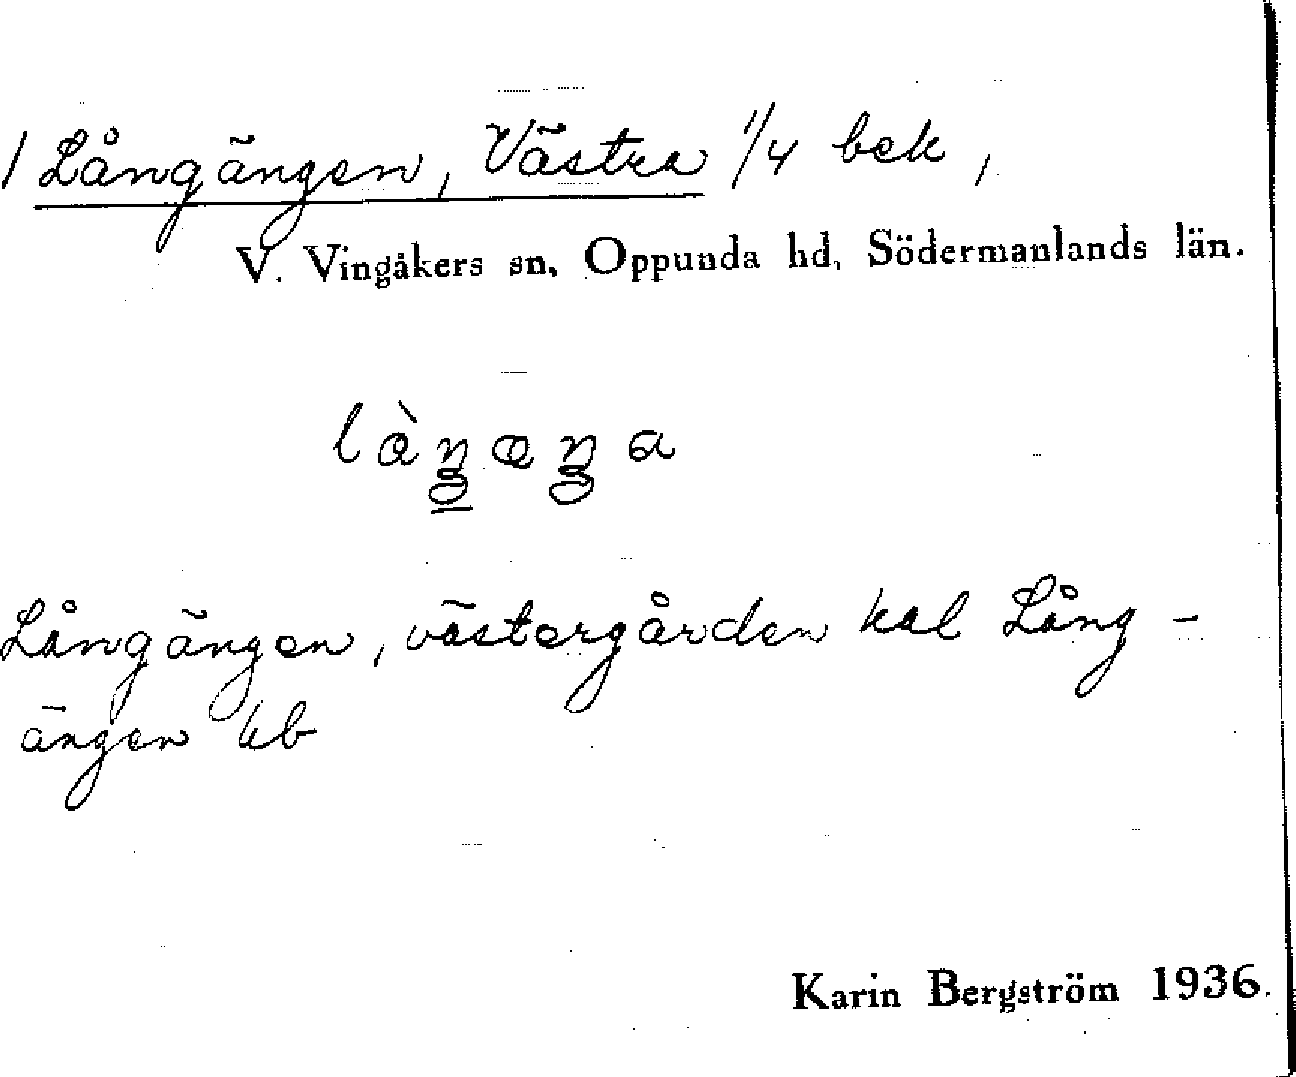 1 Långängen, Västra 1/4 bek,
V. Vingåkers sn, Oppunda hd, Södermanlands län.
Långängen, västergården kal Lång-
ängen kb
Karin Bergström 1936.